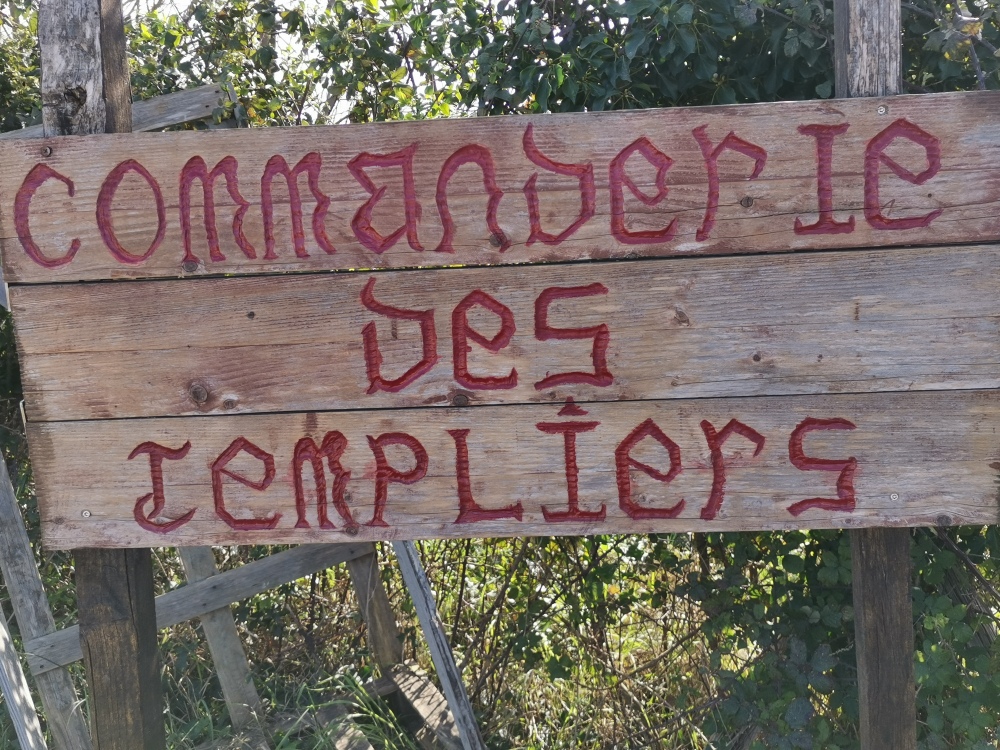 Commanderie
des
Templiers